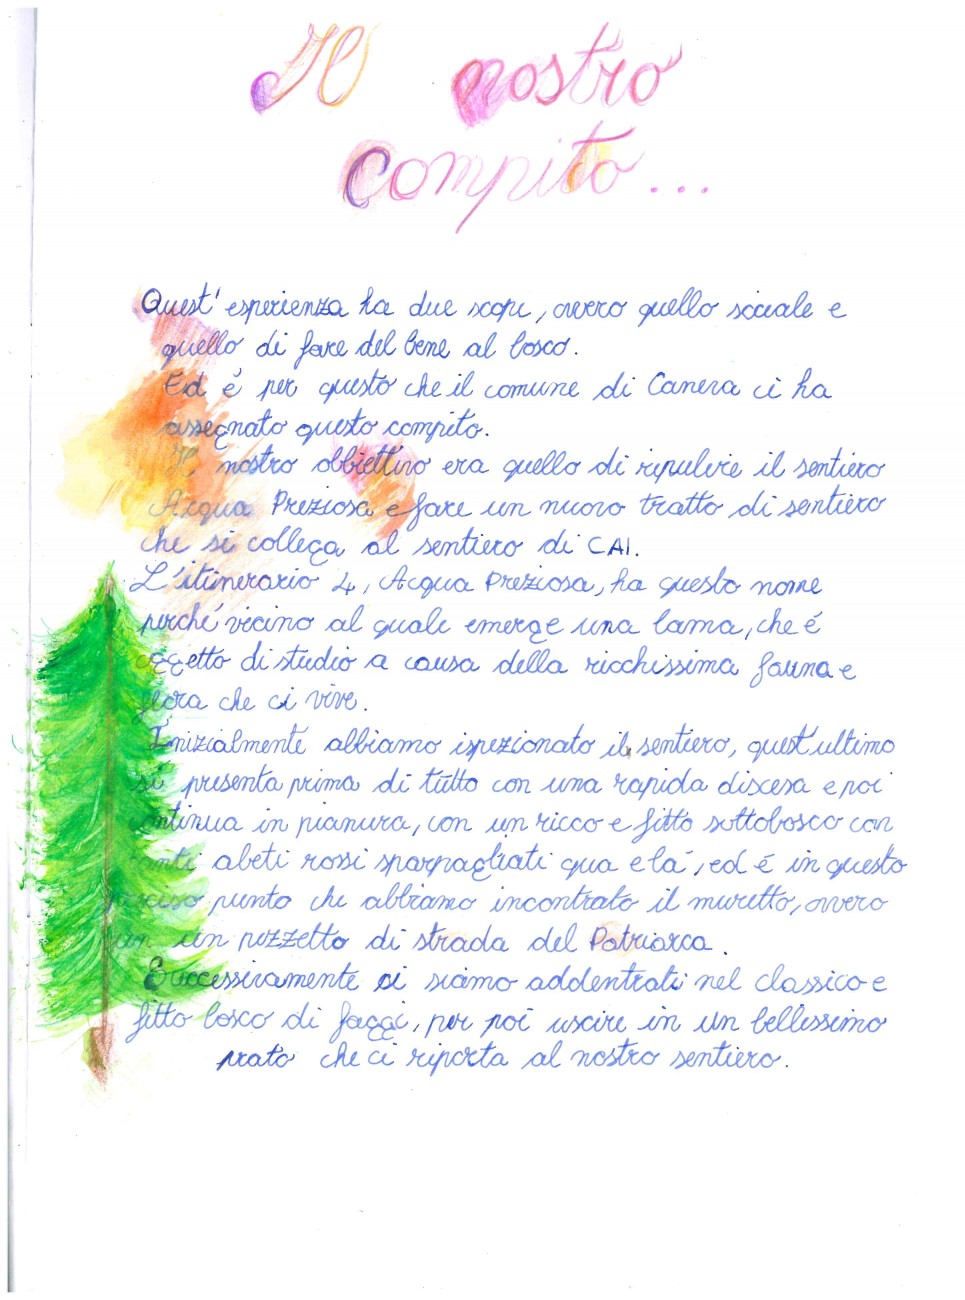 Il nostro
compito...
Quest' esperienza ha due scopi, ovvero quello sociale e
quello di fare del bene al bosco.
Ed é per questo che il comune di Caneva ci ha
assegnato questo compito.
Il nostro obbiettivo era quello di ripulire il sentiero
Acqua Preziosa e fare un nuovo tratto di sentiero
che si collega al sentiero di CAI.
L'itinerario 4, Acqua Preziosa, ha questo nome
perché vicino al quale emerge una lama, che é
oggetto di studio a causa della ricchissima fauna e
flora che ci vive.
Inizialmente abbiamo ispezionato il sentiero, quest'ultimo
si presenta prima di tutto con una rapida discesa e poi
continua in pianura, con un ricco e fitto sottobosco con
tanti abeti rossi sparpagliati qua e là, ed é in questo
preciso punto che abbiamo incontrato il muretto, ovvero
un pezzetto di strada del Patriarca.
Successivamente ci siamo addentrati nel classico e
fitto bosco di faggi, per poi uscire in un bellissimo
prato che ci riporta al nostro sentiero.